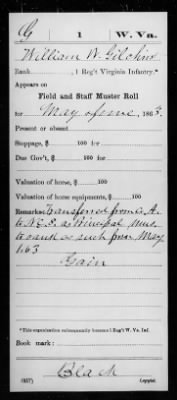 G | 1 | W. Va.
William W. Gilchin
Rank , 1 Reg't Virginia Infantry.*
Appears on
Field and Staff Muster Roll
for May & June, 1863.
Present or absent
Stoppage, $ 100 for
Due Gov't, $ 100 for
Valuation of horse, $ 100
Valuation of horse equipments, $ 100
Remarks: Transferred from Co. A.
to N.C.S. as Principal Musc.
to rank as such from May
1, 63
Gain
*This organization subsequently became 1 Reg't W. Va. Inf.
Book mark:
Black
(857) Copyist.